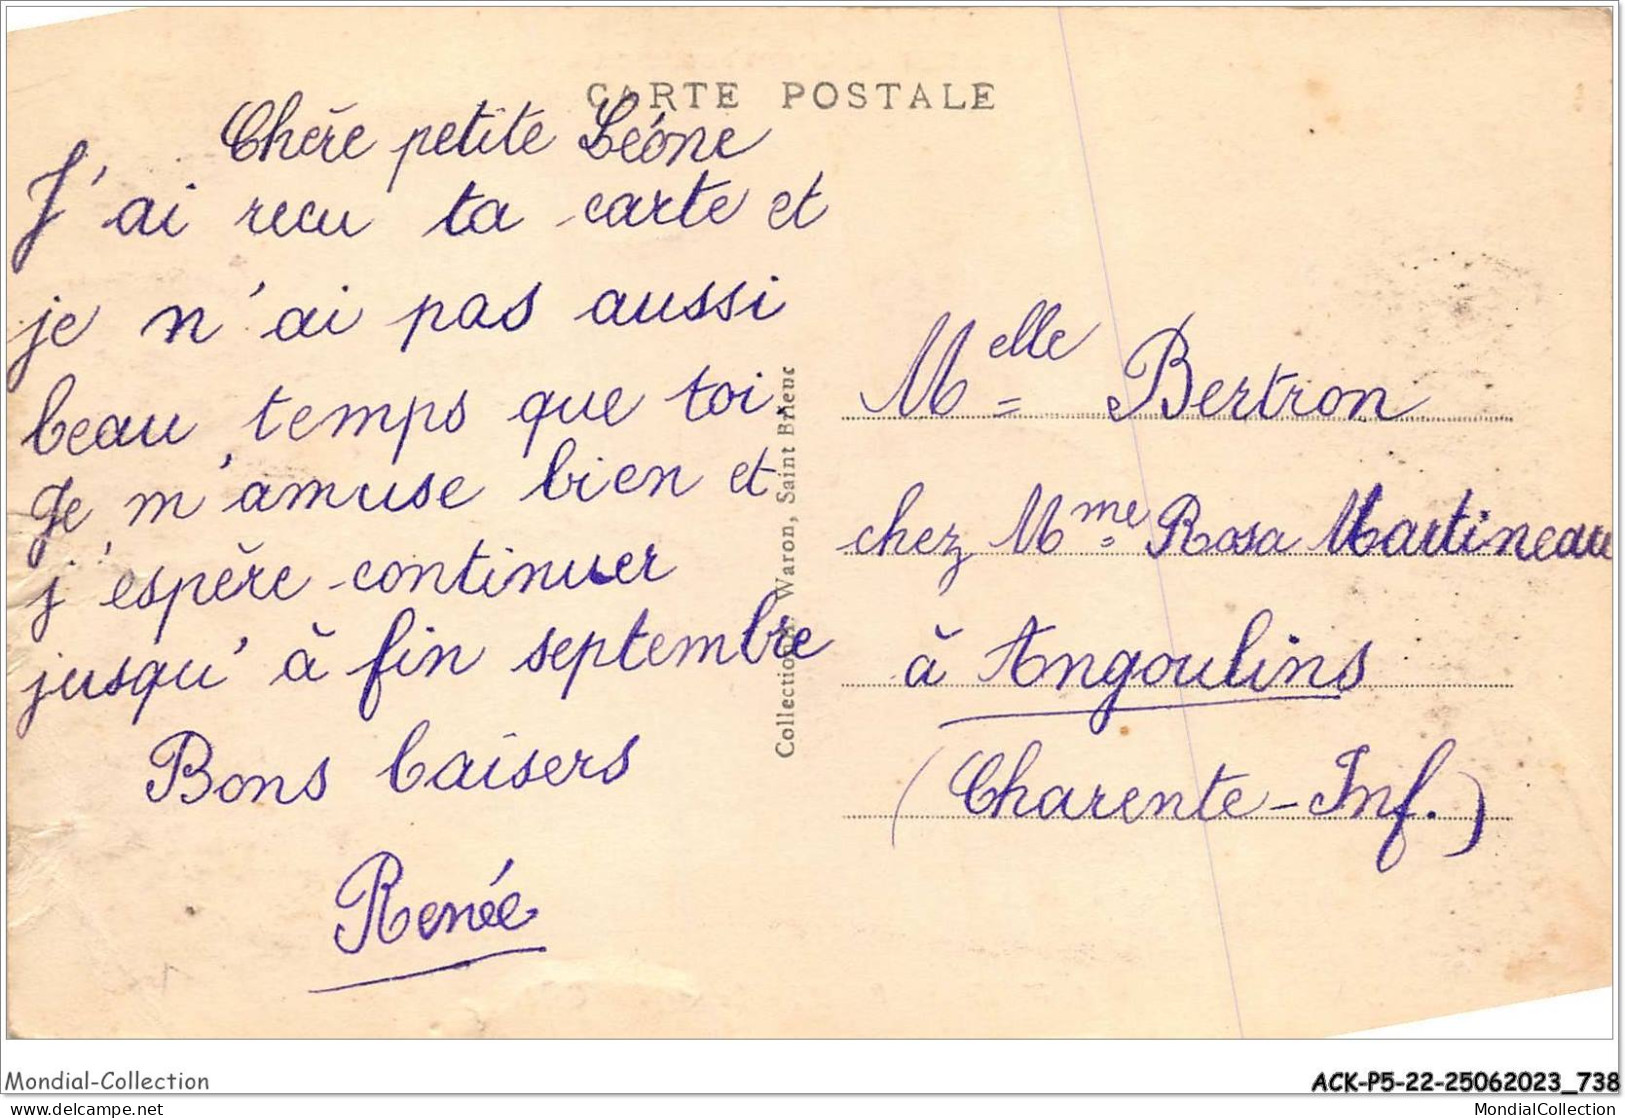 CARTE POSTALE
Chère petite Léone
J'ai recu ta carte et
je n'ai pas aussi
beau temps que toi.
Je m'amuse bien et
j'espère continuer
jusqu'à fin septembre
Bons baisers
Renée
Collection Waron, Saint Brieuc
Melle Bertron
chez Mme Rosa Martineau
à Angoulins
(Charente-Inf.)
Mondial-Collection
ACK-P5-22-25062023_738
www.delcampe.net
MondialCollection